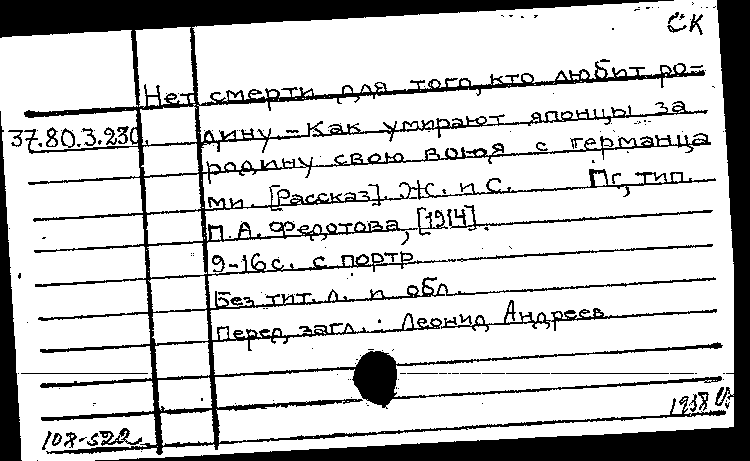 СК
Нет смерти для того, кто любит ро-
37.80.3.230. дину. - Как умирают японцы за
родину свою воюя с германца
ми. [Рассказ]. Ж. и С. Пг, тип.
П.А. Федотова, [1914].
9-16 с. с портр
Без тит. л. и обл.
Перед загл.: Леонид Андреев
1938
108-522